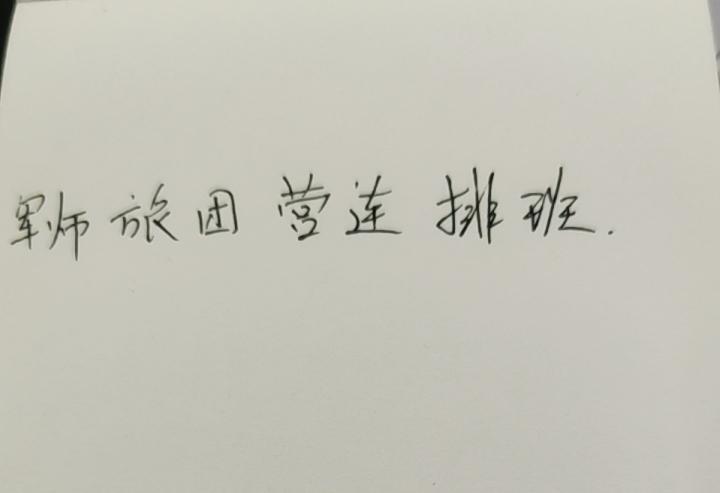 军师旅团营连排班.